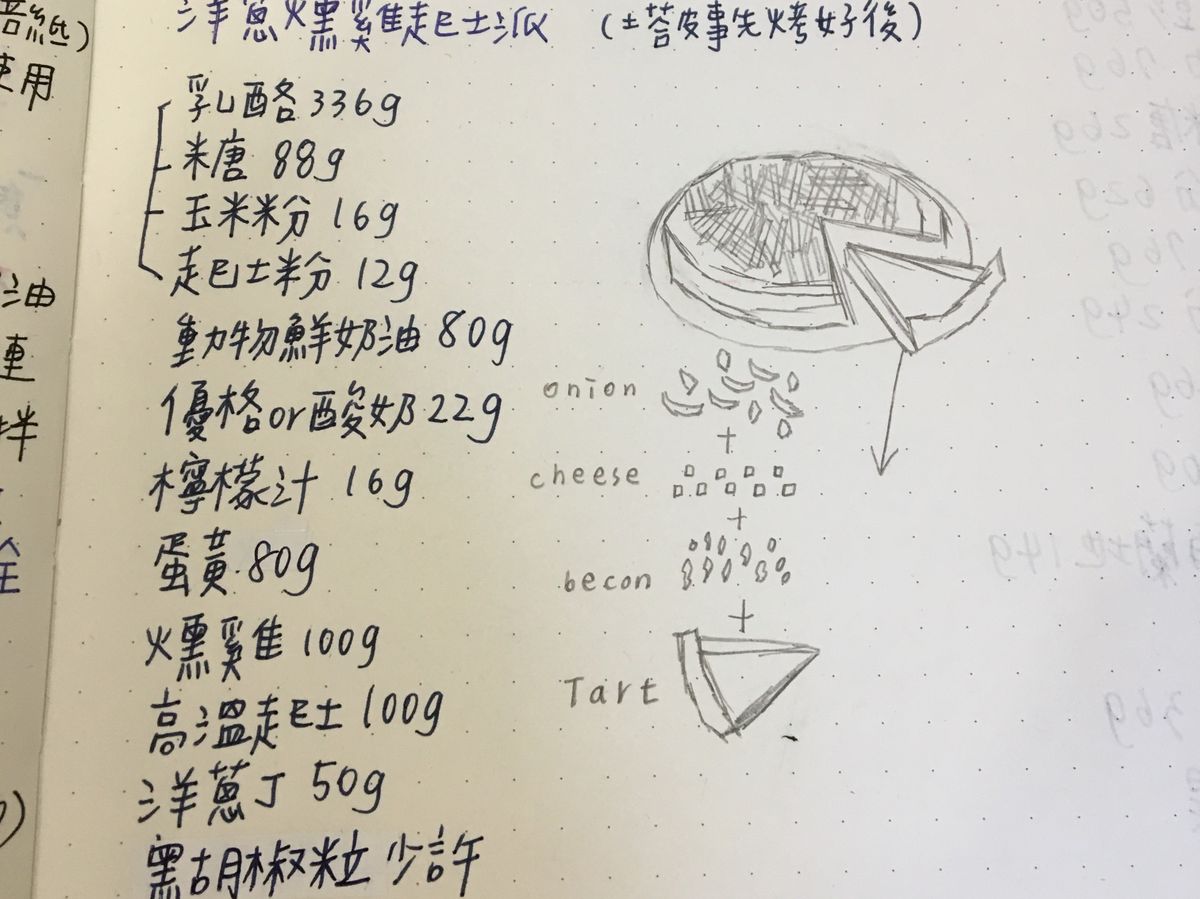 洋蔥燻雞起士派 (塔皮事先烤好後)
乳酪 336g
糖 88g
玉米粉 16g
起士粉 12g
動物鮮奶油 80g
優格or酸奶 22g
檸檬汁 16g
蛋黃 80g
燻雞 100g
高溫起士 100g
洋蔥丁 50g
黑胡椒粒 少許
onion
+
cheese
+
becon
+
Tart
用
油